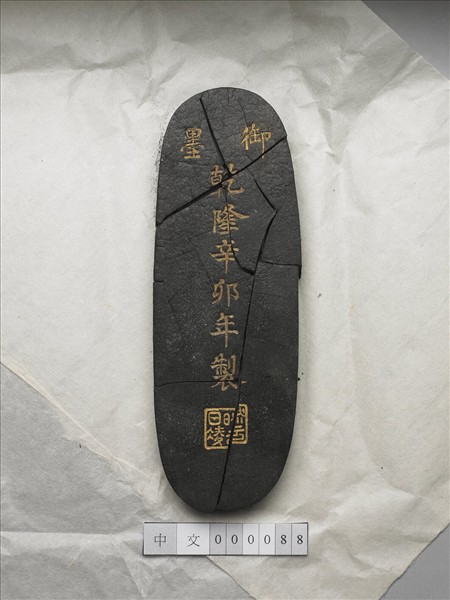 御墨
乾隆辛卯年製
中文000088